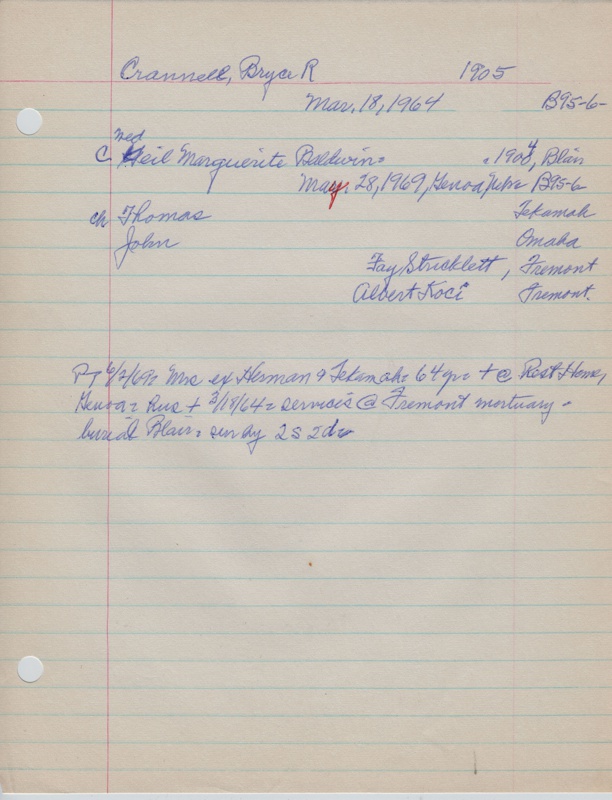 Crannell, Bryce R 1905
Mar. 18, 1964 B95-6-
Med
C Neil Marguerite Baldwin = = 1904, Blair
May. 28, 1969, Genoa, Nebr B95-6
ch Thomas Tekamah
John Omaha
Fay Stricklett, Fremont
Albert Koci Fremont.
PT 6/2/69= Mrs ex Herman & Tekamah= 64 yr= + @ Rest Home,
Genoa= Hus + 3/18/64= services @ Fremont mortuary =
burial Blair= sur by 2s 2d=